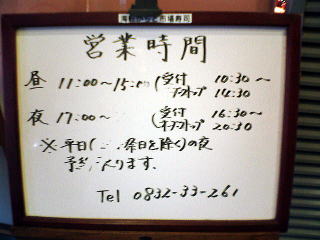 市場寿司
営業時間
昼 11:00～15:00 (受付 10:30～
ネタストップ 14:30
夜 17:00～ (受付 16:30～
ネタストップ 20:30
※平日(祭日を除く)の夜
予約入ります.
Tel 0832-33-261